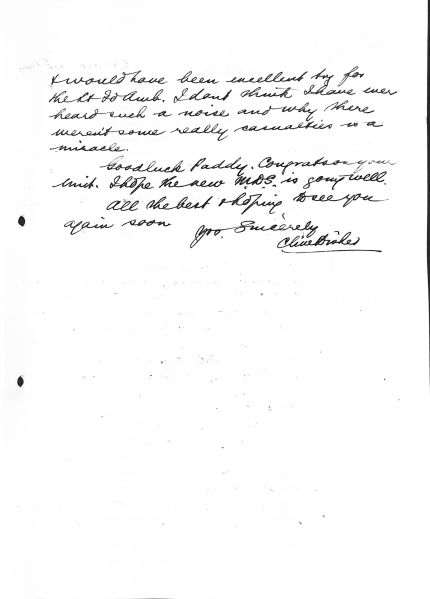 & would have been excellent try for
the Lt Fd Amb. I dont think I have ever
heard such a noise and why there
weren't some really casualties is a
miracle.
Goodluck Paddy. Congrats on your
unit. I hope the new M.D.S. is going well.
All the best & hoping to see you
again soon
Yrs. Sincerely
Clive Disher